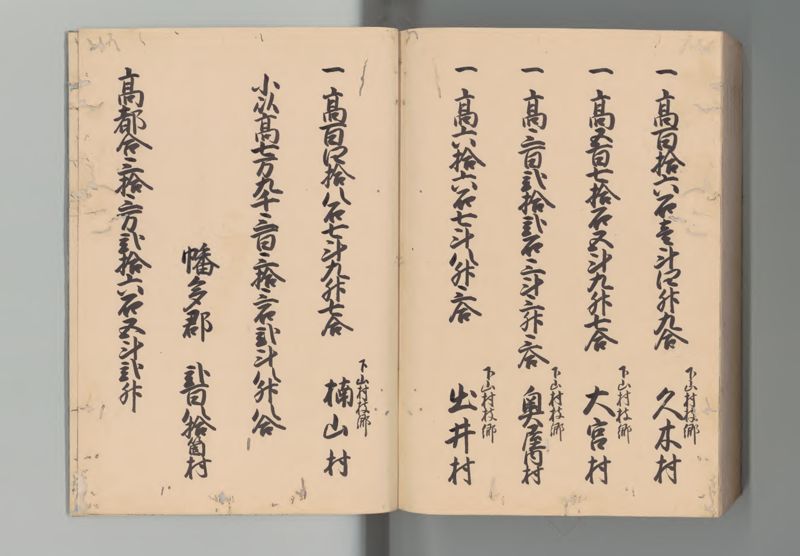 一 高百拾六石壱斗四升九合
下山村枝郷
久木村
一 高五百七拾石五斗九升七合
下山村枝郷
大宮村
一 高三百弐拾弐石三斗三升三合
下山村枝郷
奥屋内村
一 高六拾六石七斗八升三合
下山村枝郷
出井村
一 高百四拾八石七斗九升七合
下山村枝郷
楠山村
小以高七万九千三百三拾三石弐斗八升八合
幡多郡 弐百八拾箇村
高都合三拾三万弐拾六石五斗弐升